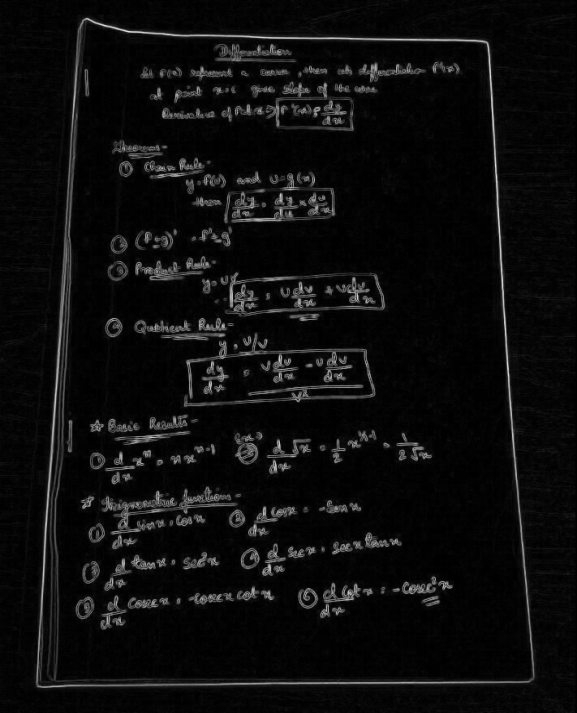 Differentiation
If f(x) represent a curve, then its differentiation f'(x)
at point x=c gives slope of the curve
Derivative of f at x => f'(x) = dy/dx
Theorems-
① Chain Rule-
y = f(u) and u = g(x)
then dy/dx = dy/du × du/dx
② (f±g)' = f'±g'
③ Product Rule-
y = uv
dy/dx = u dv/dx + v du/dx
④ Quotient Rule-
y = u/v
dy/dx = v du/dx - u dv/dx / v²
☆ Basic Results-
① d/dx xⁿ = n xⁿ⁻¹ ② d/dx √x = 1/2 x^(1/2-1) = 1/2√x
☆ Trignometric functions-
① d/dx sinx = cosx ② d/dx cosx = -sinx
③ d/dx tanx = sec²x ④ d/dx secx = secx tanx
⑤ d/dx cosecx = -cosecx cotx ⑥ d/dx cotx = -cosec²x